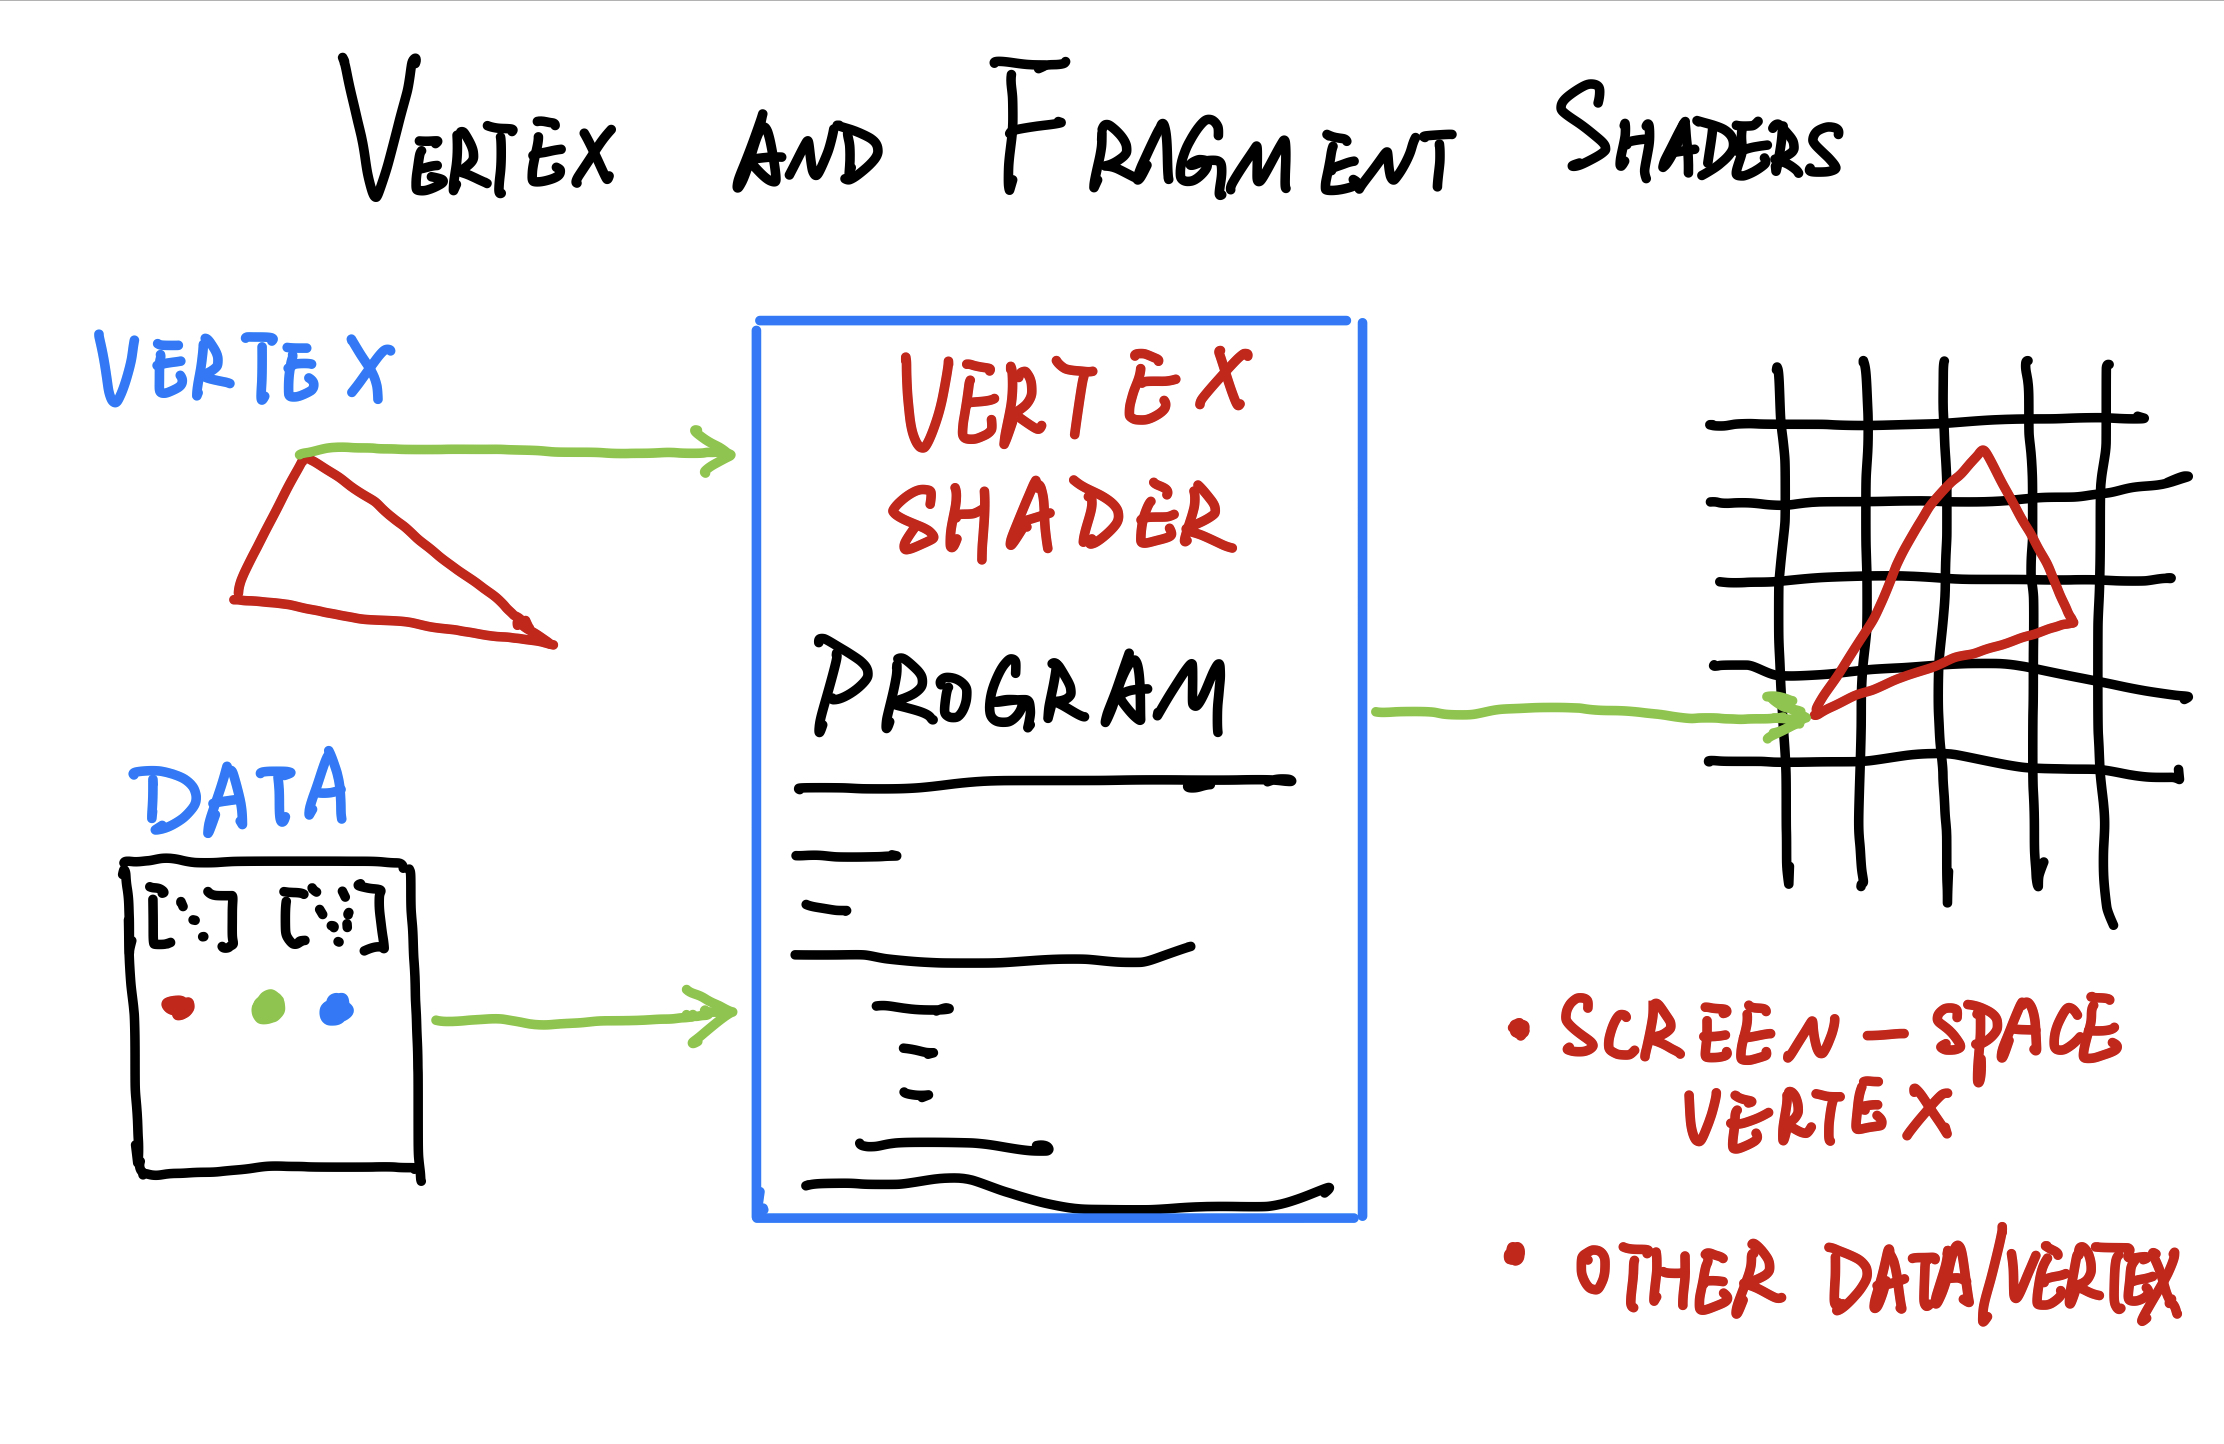 VERTEX AND FRAGMENT SHADERS
VERTEX
DATA
VERTEX
SHADER
PROGRAM
• SCREEN-SPACE
VERTEX
• OTHER DATA/VERTEX